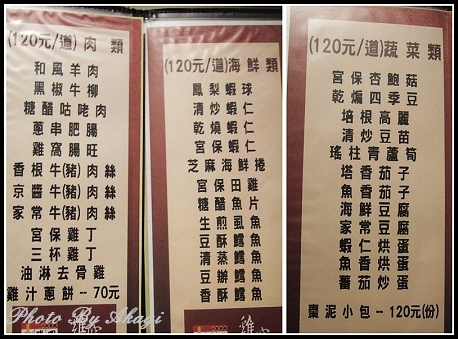 (120元/道)肉 類
和風羊肉
黑椒牛柳
糖醋咕咾肉
蔥串肥腸
雞窩腸旺
香根牛(豬)肉絲
京醬牛(豬)肉絲
家常牛(豬)肉絲
宮保雞丁
三杯雞丁
油淋去骨雞
雞汁蔥餅--70元
(120元/道)海鮮類
鳳梨蝦球
清炒蝦仁
乾燒蝦仁
宮保蝦仁
芝麻海鮮捲
宮保田雞
糖醋魚片
生煎虱魚
豆酥鱈魚
清蒸鱈魚
豆瓣鱈魚
香酥鱈魚
(120元/道)蔬菜類
宮保杏鮑菇
乾煸四季豆
培根高麗
清炒豆苗
瑤柱青蘆筍
塔香茄子
魚香茄子
海鮮豆腐
家常豆腐
蝦仁烘蛋
魚香烘蛋
蕃茄炒蛋
棗泥小包--120元(份)
Photo By Akagi